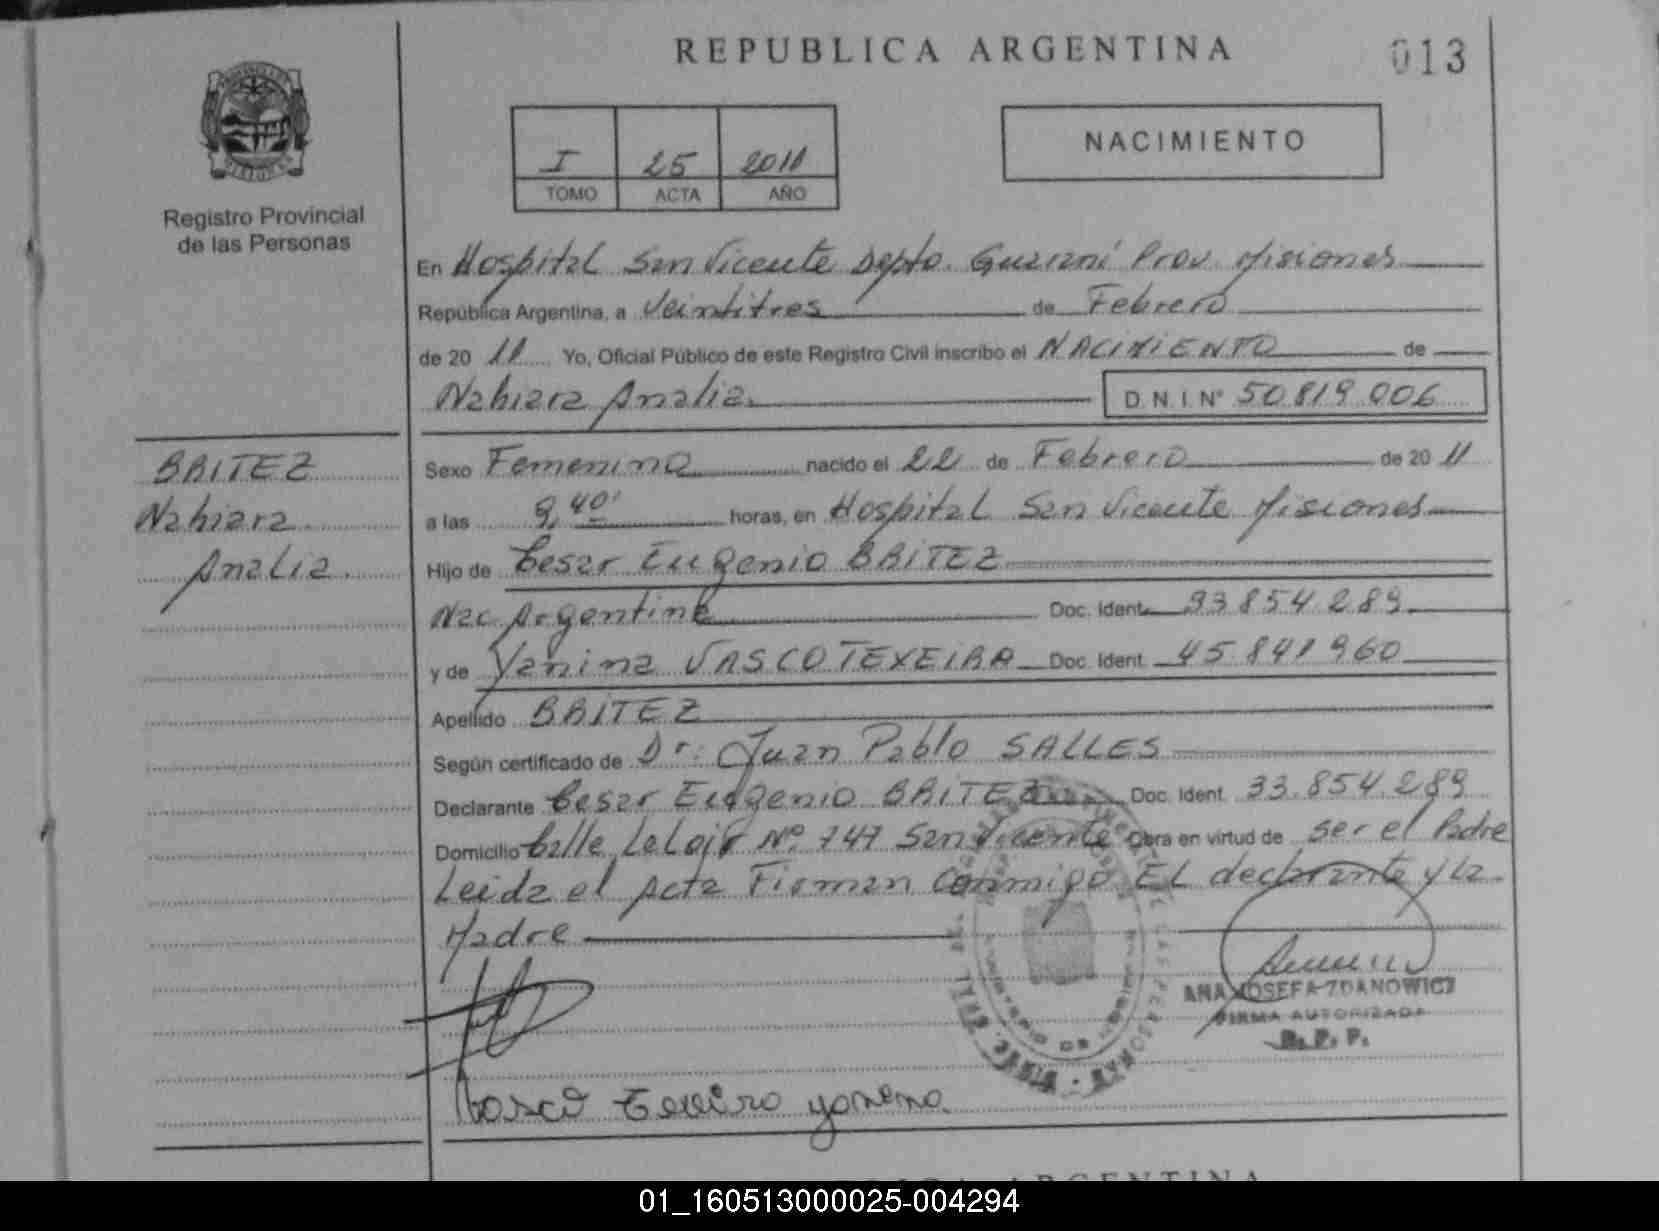 REPUBLICA ARGENTINA
013
Registro Provincial
de las Personas
I 25 2011
TOMO ACTA AÑO
NACIMIENTO
En Hospital San Vicente Depto. Guaraní Prov. Misiones
República Argentina, a Veintitres de Febrero
de 20 11 Yo, Oficial Público de este Registro Civil inscribo el NACIMIENTO de
Nahiara Analia D.N.I. N° 50.819.006
BRITEZ
Nahiara
Analia
Sexo Femenino nacido el 22 de Febrero de 20 11
a las 9,40' horas, en Hospital San Vicente Misiones
Hijo de Cesar Eugenio BRITEZ
Nac. Argentina Doc. Ident. 33.854.289
y de Yanina VASCO TEXEIRA Doc. Ident. 45.841.960
Apellido BRITEZ
Según certificado de Dr: Juan Pablo SALLES
Declarante Cesar Eugenio BRITEZ Doc. Ident. 33.854.289
Domicilio Calle Leloir Nº 747 San Vicente Obra en virtud de ser el Padre
Leida el Acta Firman Conmigo EL declarante y la
Madre
ANA JOSEFA ZDANOWICZ
FIRMA AUTORIZADA
R. P. P.
Vasco Texeira yanina
REPUBLICA ARGENTINA
01_160513000025-004294